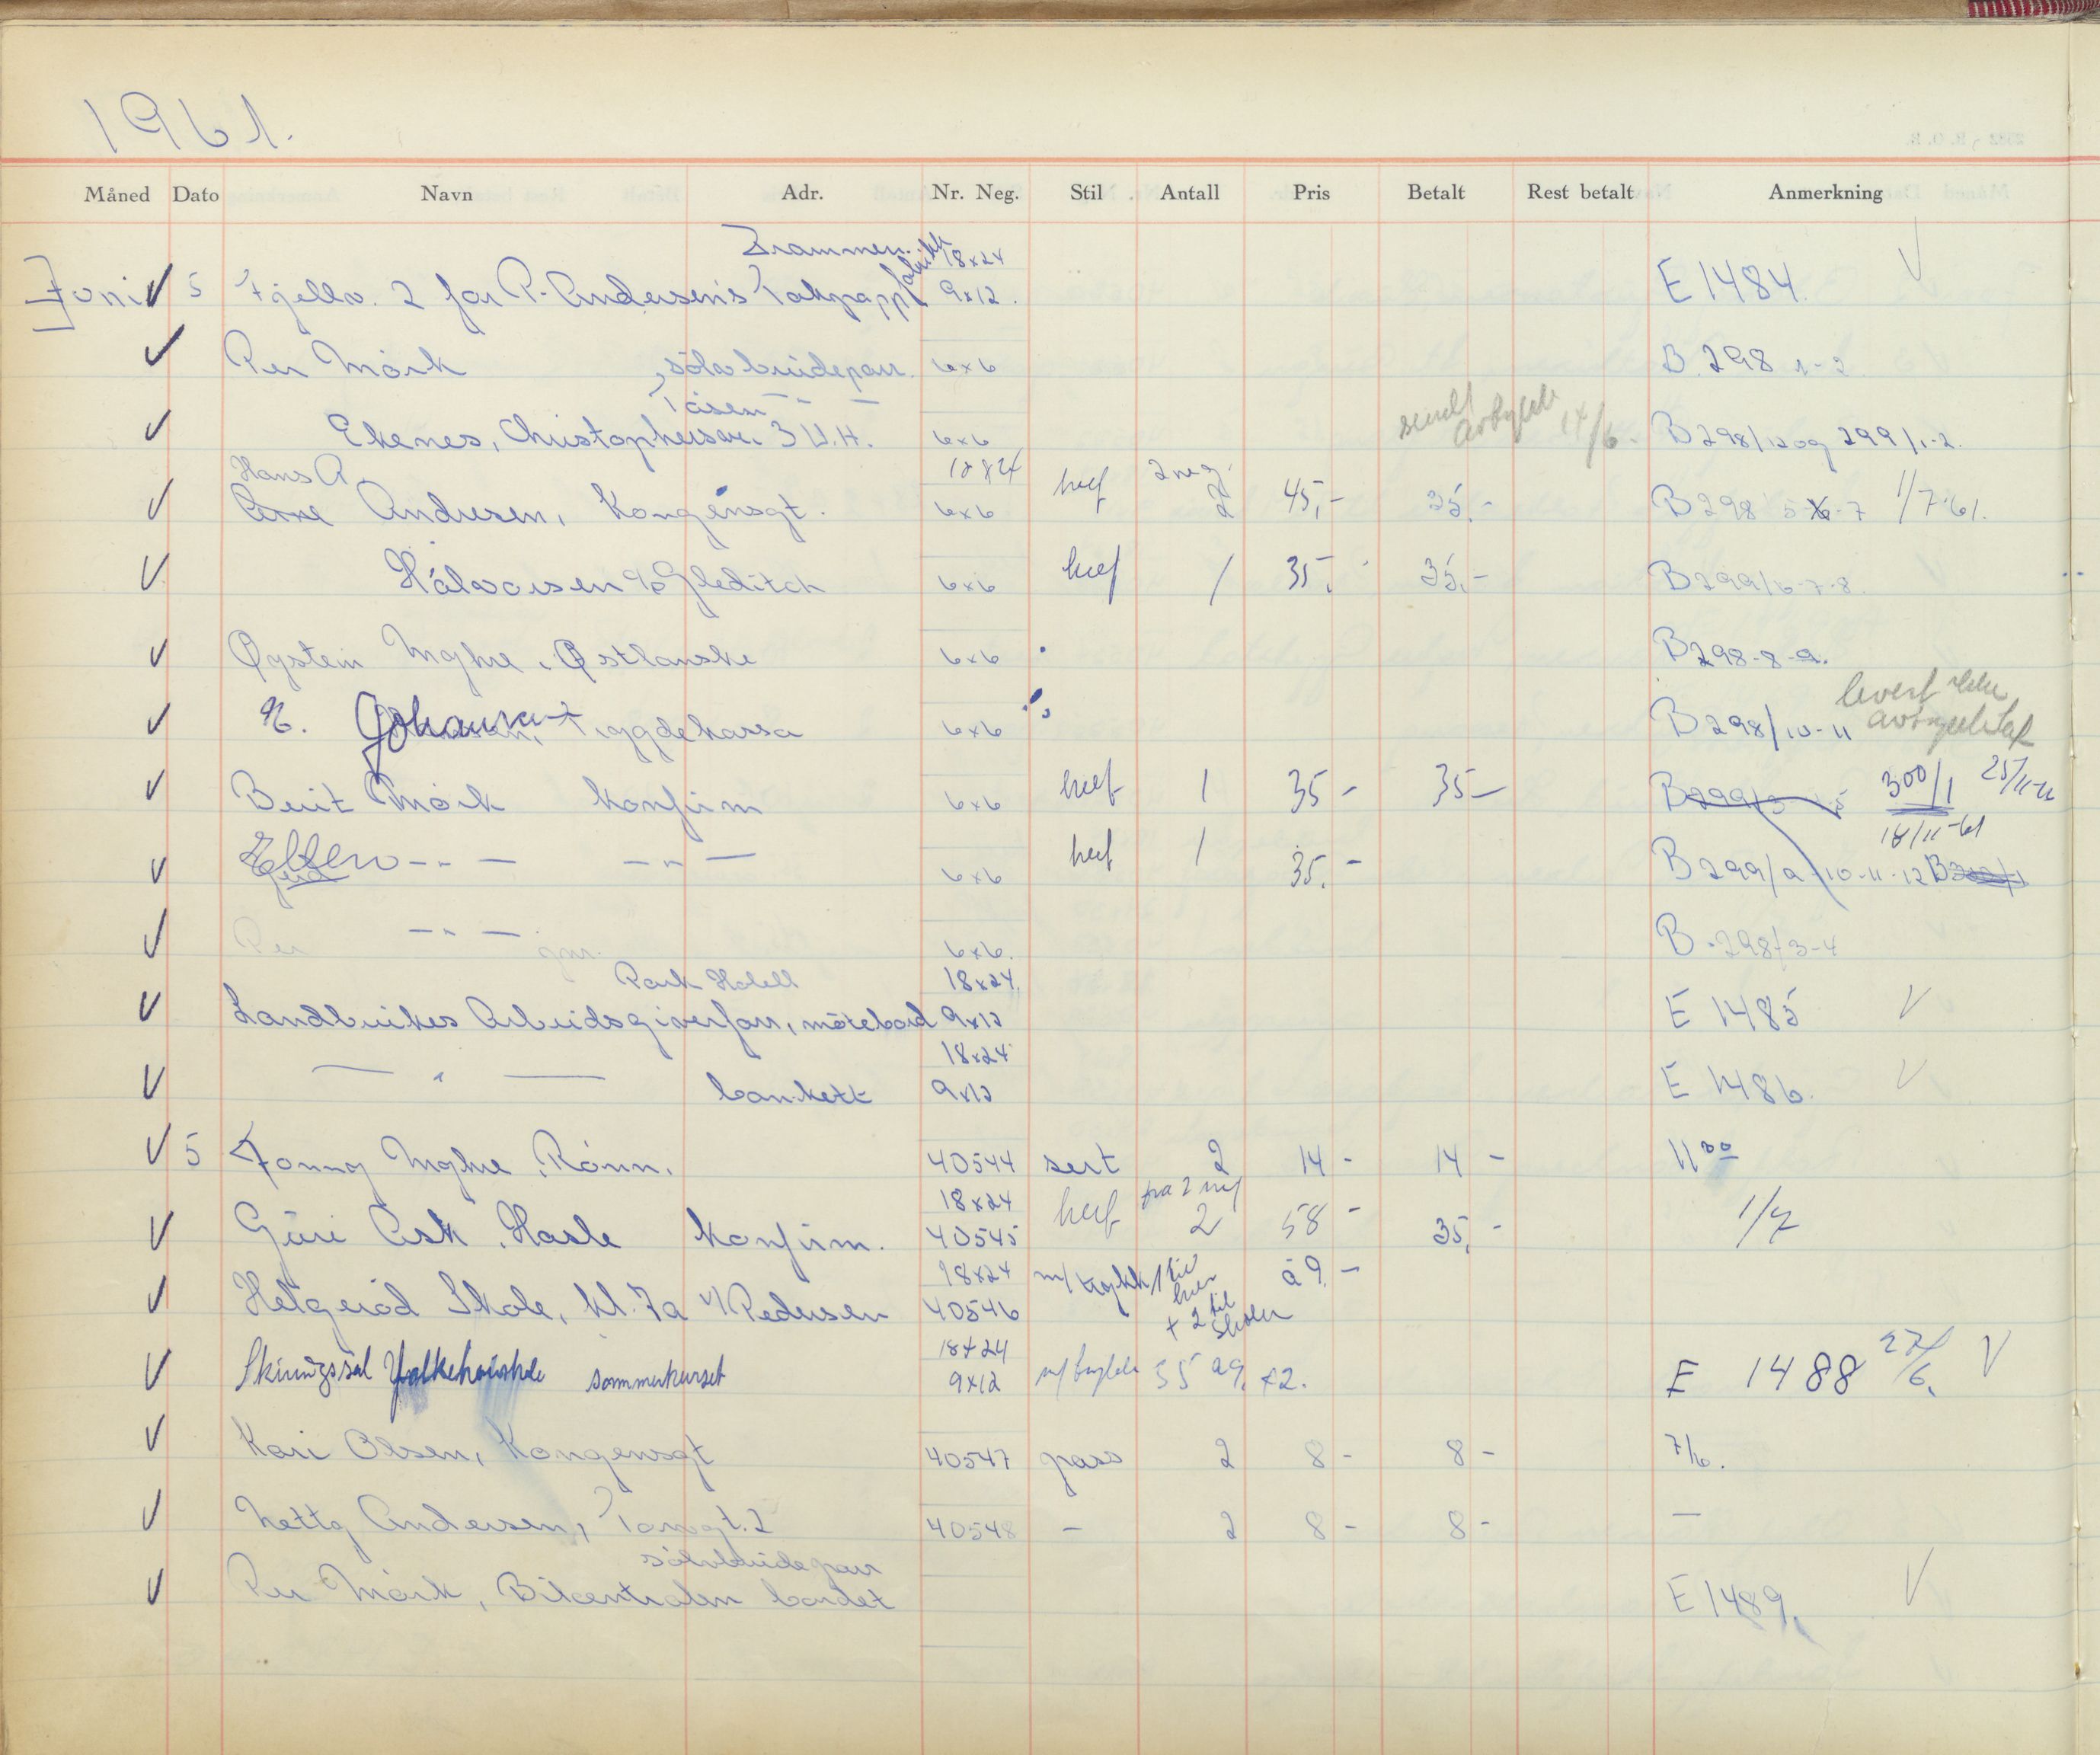 1961.
Måned Dato Navn Adr. Nr. Neg. Stil Antall Pris Betalt Rest betalt Anmerkning
Drammen. 18x24
Juni 5 Fjellv. 2 for P. Andersen's Takpappfabrikk 9x12. E 1484.
Per Mørk, sølvbrudepar. 6x6 B. 298 1-2
Tåsen
Ekenes, Christophersv. 3 U.H. 6x6 B 298/12 og 299/1-2.
14/6.
Hans A 18x24 2 neg.
Arne Andresen, Kongensgt. 6x6 hef 2 45,- 35.- B 298 5-6-7 1/7-61.
Halvorsen c/o Gleditch 6x6 hef 1 35,- 35,- B299/6-7-8.
Øystein Myhre, Østlanske 6x6 B298-8-9.
levert
N. Johansen, Tryggdekassa 6x6 B298/10-11
Berit Mørk konfirm 6x6 hef 1 35- 35- B299/3 300/1 25/11-61
18/11-61
Ellen -"- -"- 6x6 hef 1 35.- B299/9-10-11-12
Per -"- jnr. 6x6. B.298/3-4
Park Hotell 18x24
Landbrukes Arbeidsgiverforr, møtebord 9x12 E 1485
18x24
-"- bankett 9x12 E 1486.
5 Jonny Myhre, Rønn. 40544 sert 2 14- 14- 11 30
18x24 fra 2 neg
Guri Ask, Hasle konfirm. 40545 hef 2 58- 35,- 1/7
18x24 m/trykk 1 til hver à 9.-
Helgerød Skole, kl. 7a v/Pedersen 40546 + 2 til skolen
18x24
Skiringssal Folkehøiskole sommerkurset 9x12 35 à 9. +2. E 1488 27/6.
Kari Olsen, Kongensgt 40547 pass 2 8- 8- 7/6.
Netty Andersen, Torvgt. 2 40548 - 2 8- 8- -
sølvbrudepar
Per Mørk, Bilcentralen bordet E 1489.